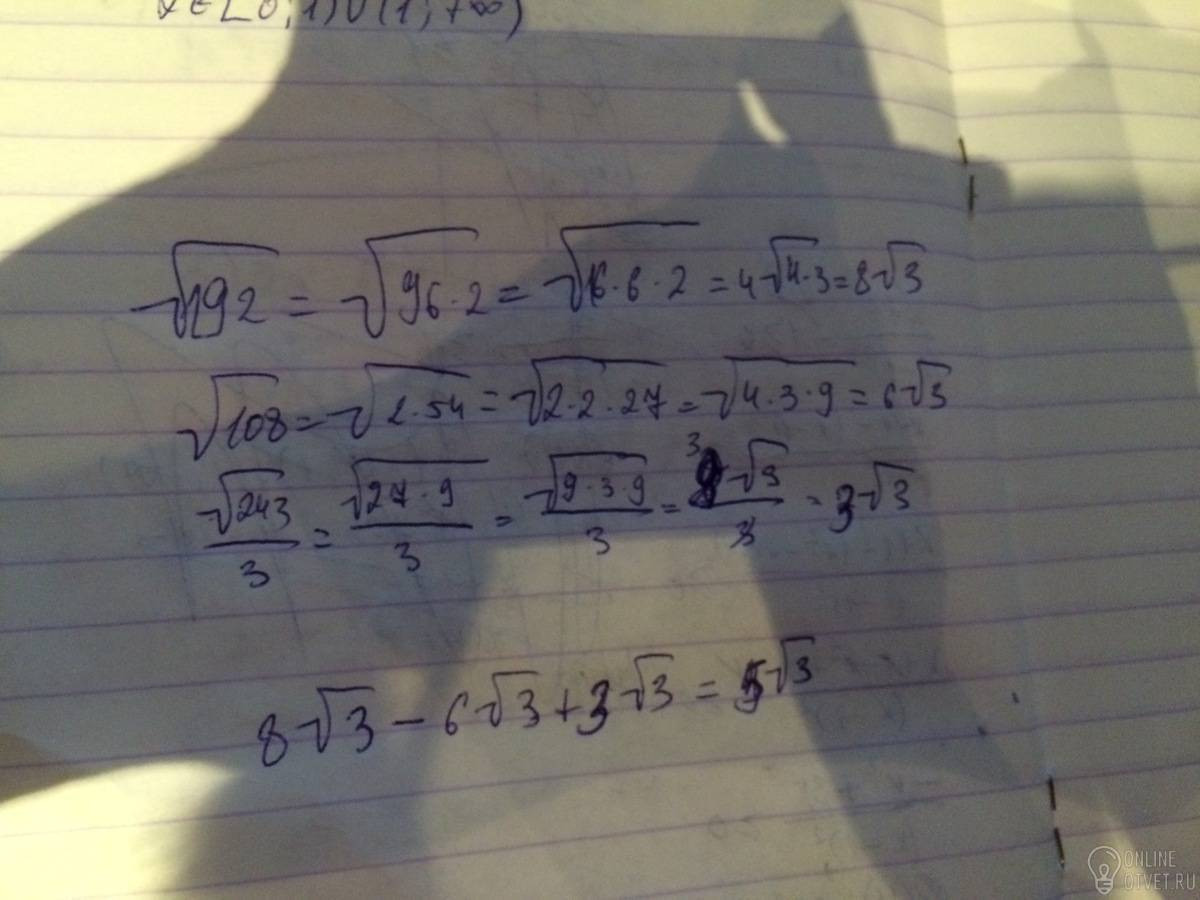 x∈[0;1)∪(1;+∞)
√192 = √96·2 = √16·6·2 = 4√4·3 = 8√3
√108 = √2·54 = √2·2·27 = √4·3·9 = 6√3
√243/3 = √27·9/3 = √9·3·9/3 = 9 3√3/3 = 3√3
8√3 − 6√3 + 3√3 = 5√3
ONLINE
OTVET.RU